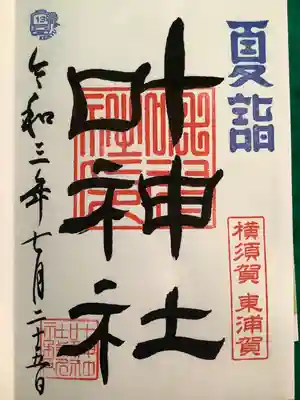 夏詣
横須賀 東浦賀
叶神社
令和三年七月二十五日